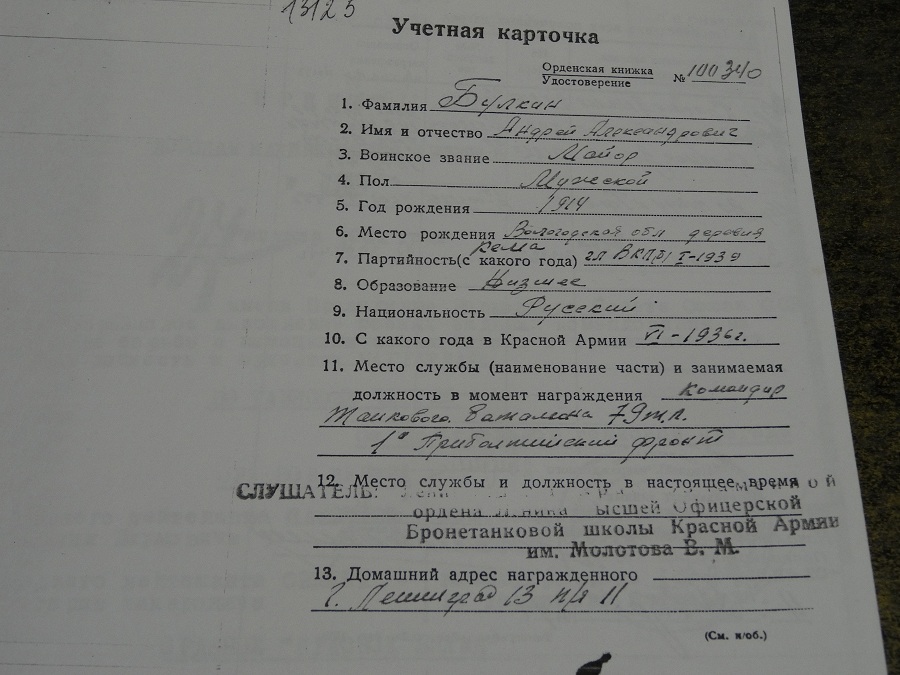 13125
Учетная карточка
Орденская книжка
Удостоверение № 100340
1. Фамилия Булкин
2. Имя и отчество Андрей Александрович
3. Воинское звание Майор
4. Пол Мужской
5. Год рождения 1914
6. Место рождения Вологодская обл деревня
Кема
7. Партийность (с какого года) чл ВКП(б) I-1939
8. Образование Низшее
9. Национальность Русский
10. С какого года в Красной Армии VI-1936г.
11. Место службы (наименование части) и занимаемая
должность в момент награждения командир
танкового батальона 79 т.п.
1й Прибалтийский фронт
12. Место службы и должность в настоящее время
СЛУШАТЕЛЬ:
ордена Ленина Высшей Офицерской
Бронетанковой школы Красной Армии
им. Молотова В. М.
13. Домашний адрес награжденного
г. Ленинград 13 п/я 11
(См. н/об.)